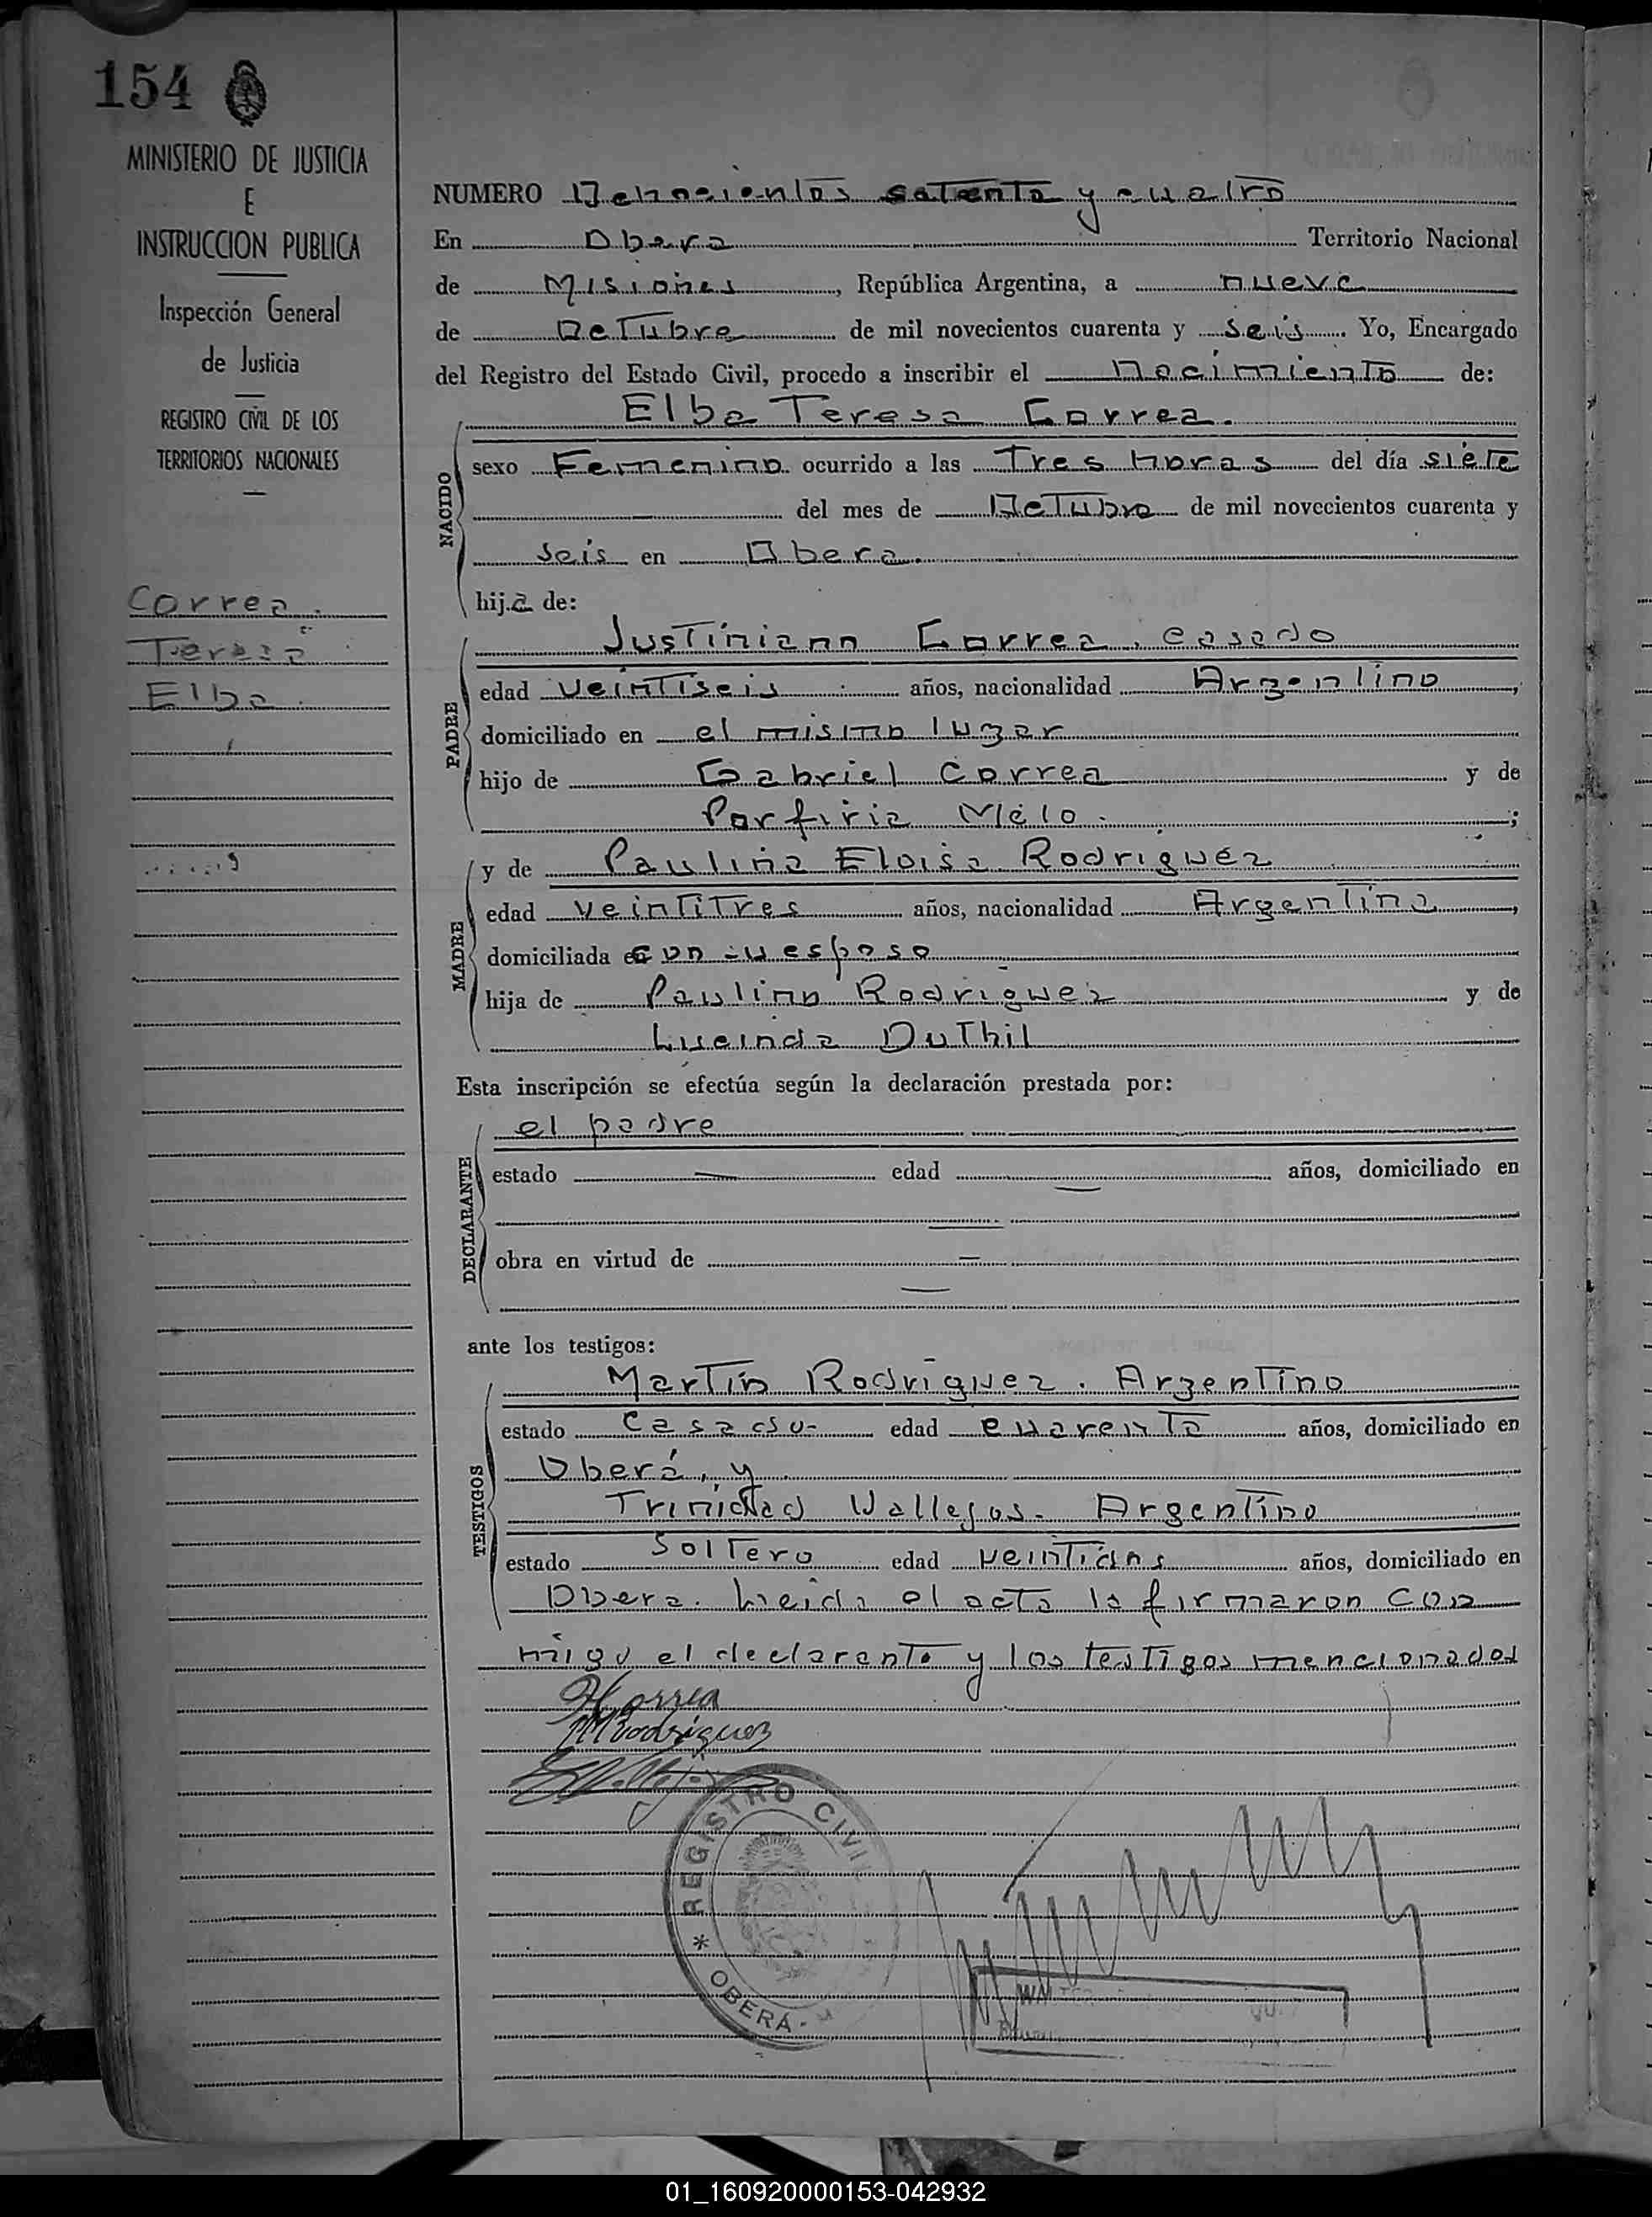 154
MINISTERIO DE JUSTICIA
E
INSTRUCCION PUBLICA
Inspección General
de Justicia
REGISTRO CIVIL DE LOS
TERRITORIOS NACIONALES
Correa.
Teresa
Elba.
NUMERO Ochocientos setenta y cuatro
En Obera Territorio Nacional
de Misiones, República Argentina, a nueve
de Octubre de mil novecientos cuarenta y seis. Yo, Encargado
del Registro del Estado Civil, procedo a inscribir el nacimiento de:
NACIDO
Elba Teresa Correa.
sexo Femenino ocurrido a las Tres horas del día siete
del mes de Octubre de mil novecientos cuarenta y
seis en Obera.
hija de:
PADRE
Justiniano Correa, casado
edad veintiseis años, nacionalidad Argentino,
domiciliado en el mismo lugar
hijo de Gabriel Correa y de
Porfiria Melo.;
MADRE
y de Paulina Eloisa Rodriguez
edad veintitres años, nacionalidad Argentina,
domiciliada con su esposo
hija de Paulino Rodriguez y de
Lucinda Duthil
Esta inscripción se efectúa según la declaración prestada por:
DECLARANTE
el padre
estado edad años, domiciliado en
obra en virtud de
ante los testigos:
TESTIGOS
Martin Rodriguez. Argentino
estado Casado- edad cuarenta años, domiciliado en
Oberá, y
Trinidad Vallejos- Argentino
estado Soltero edad veintidos años, domiciliado en
Obera. Leida el acta la firmaron con
migo el declarante y los testigos mencionados
Correa
MRodriguez
REGISTRO CIVIL
* OBERÁ-
01_160920000153-042932